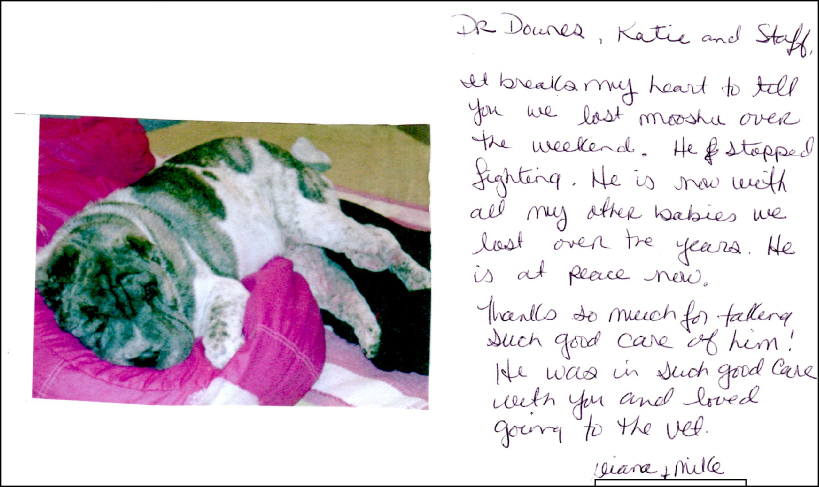 Dr Downes, Katie and Staff,
It breaks my heart to tell
you we lost mooshu over
the weekend. He stopped
fighting. He is now with
all my other babies we
lost over the years. He
is at peace now.
Thanks so much for taking
such good care of him!
He was in such good care
with you and loved
going to the vet.
Diana + Mike